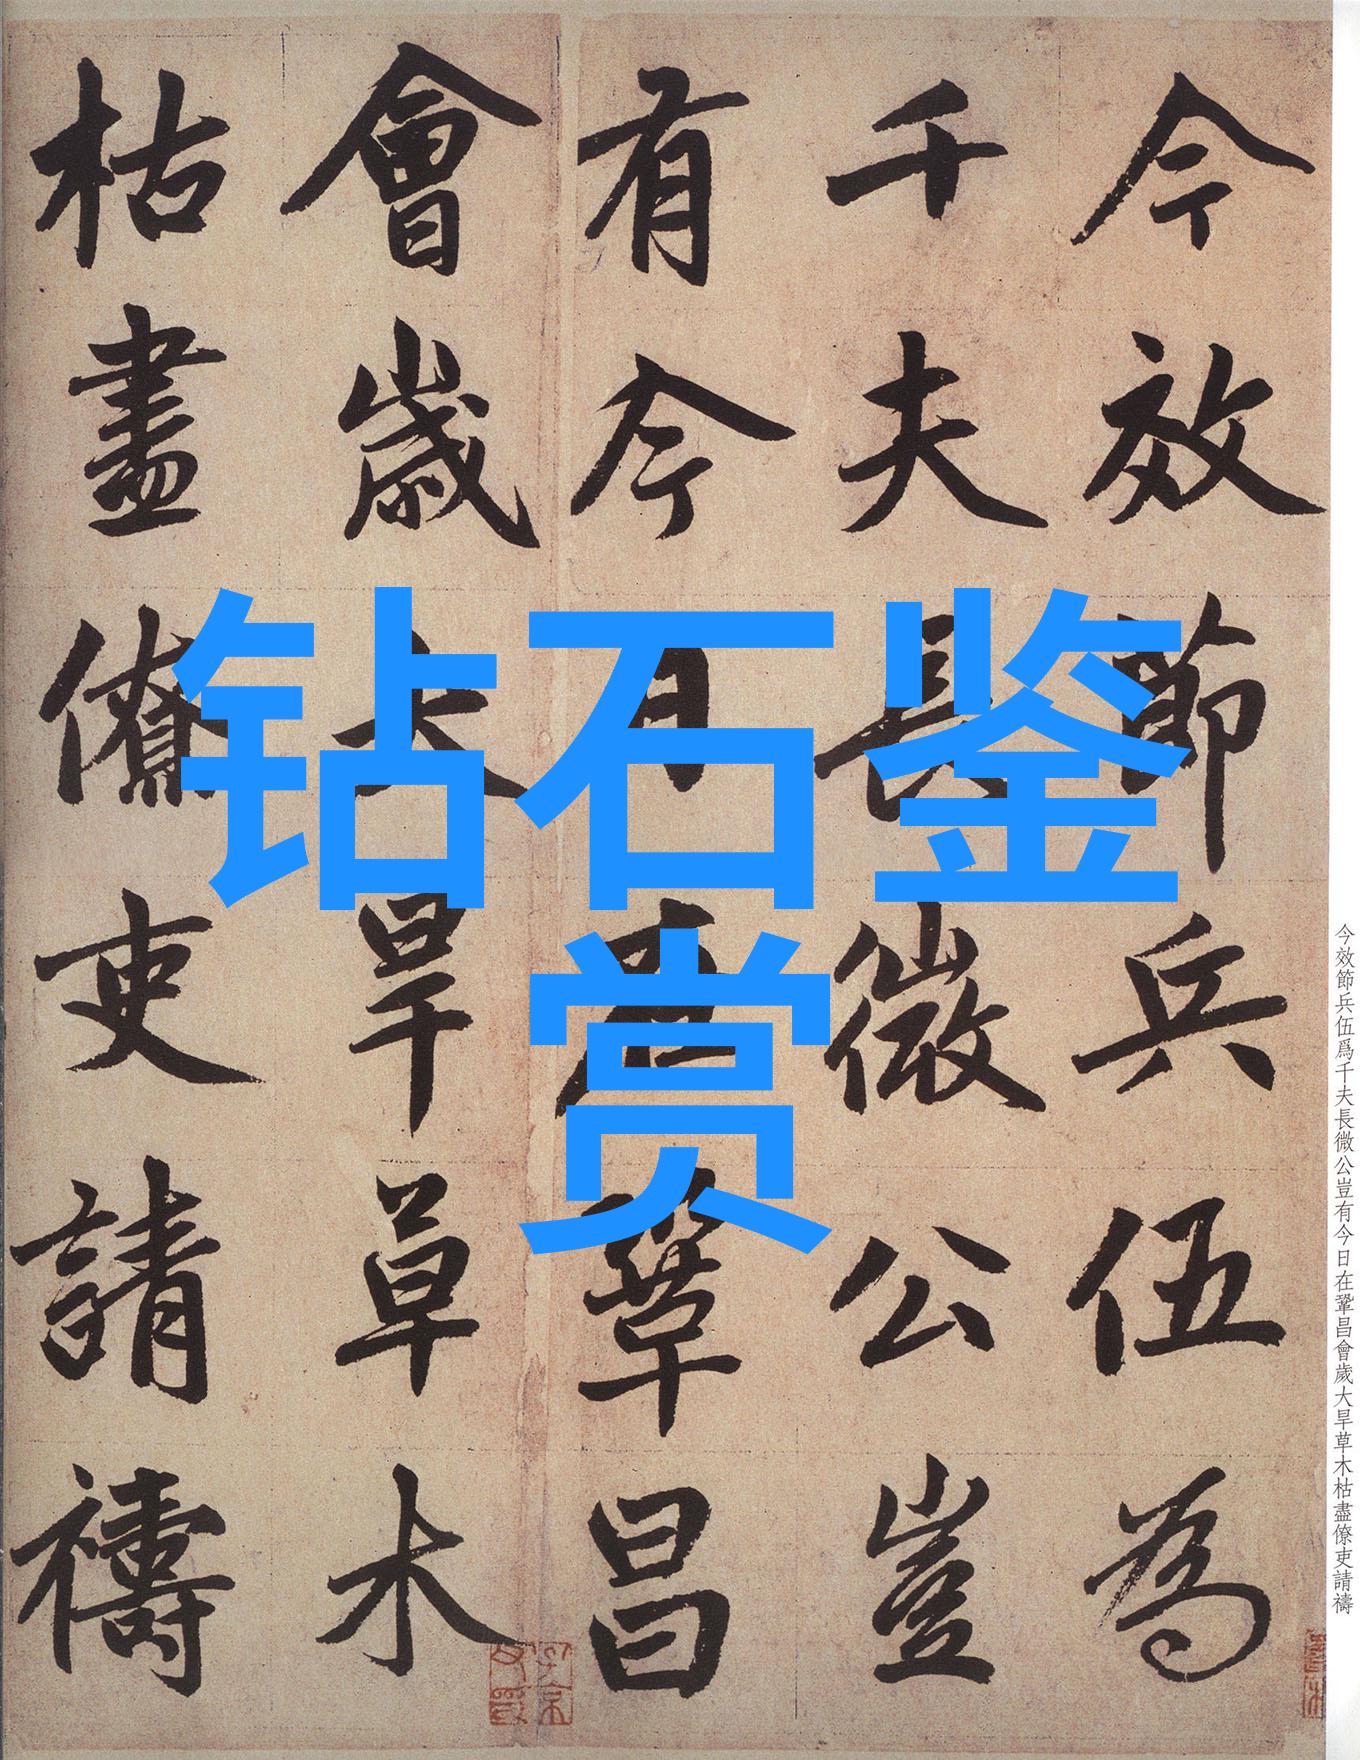 钻石鉴
赏
今效節兵伍為
千夫長微公豈
有今日在鞏昌
會歲大旱草木
枯盡僚吏請禱
今效節兵伍爲千夫長微公豈有今日在鞏昌會歲大旱草木枯盡僚吏請禱